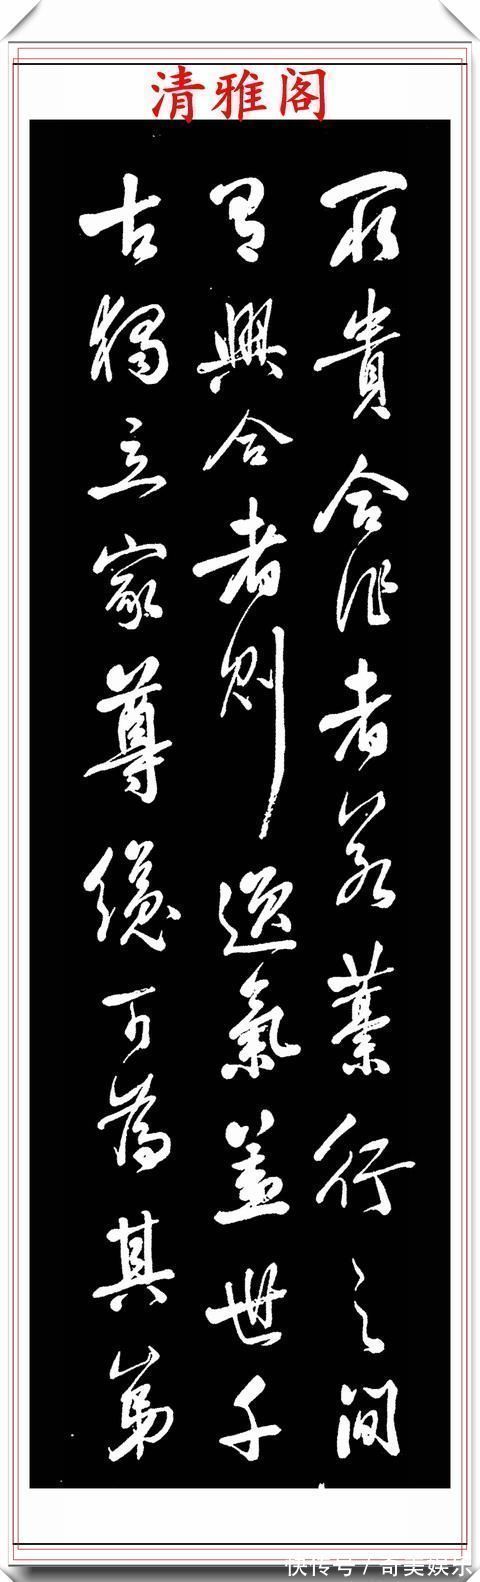 清雅阁
所貴合作者若藁行之間
有興合者則逸氣蓋世千
古獨立家尊纔可為其弟
快传号/奇美娱乐